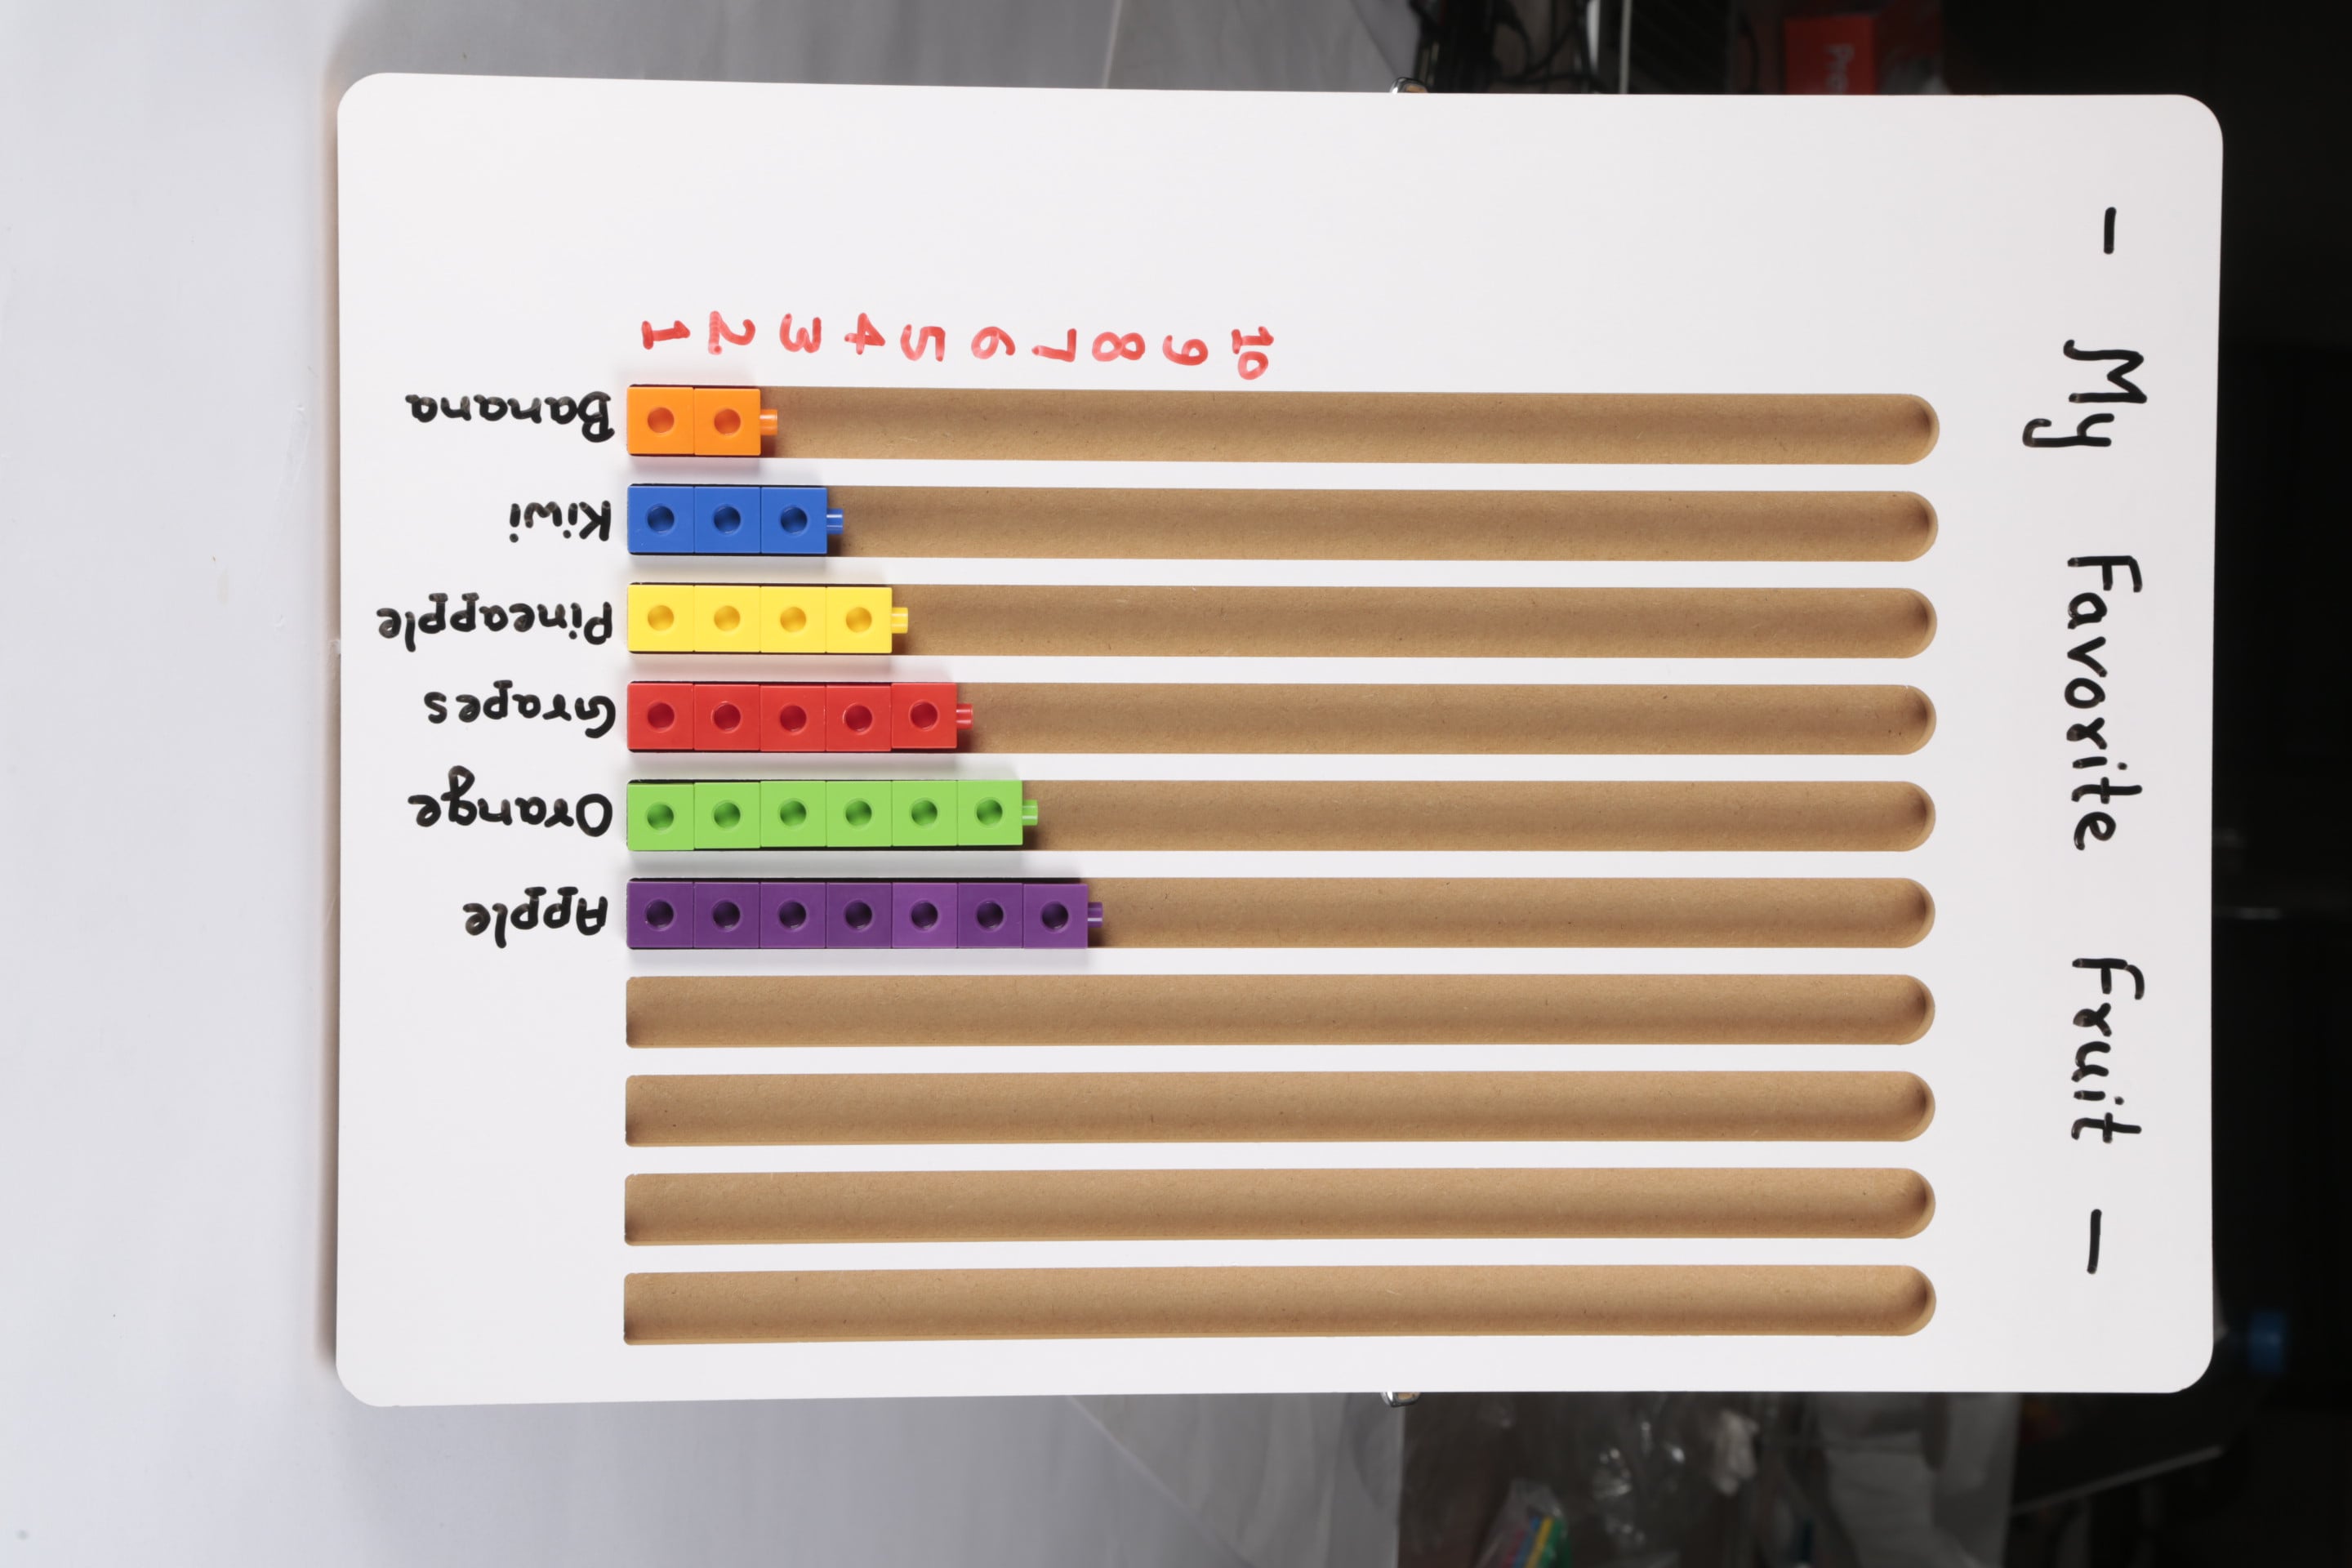 - My Favorite Fruit -
10
9
8
7
6
5
4
3
2
1
Banana
Kiwi
Pineapple
Grapes
Orange
Apple